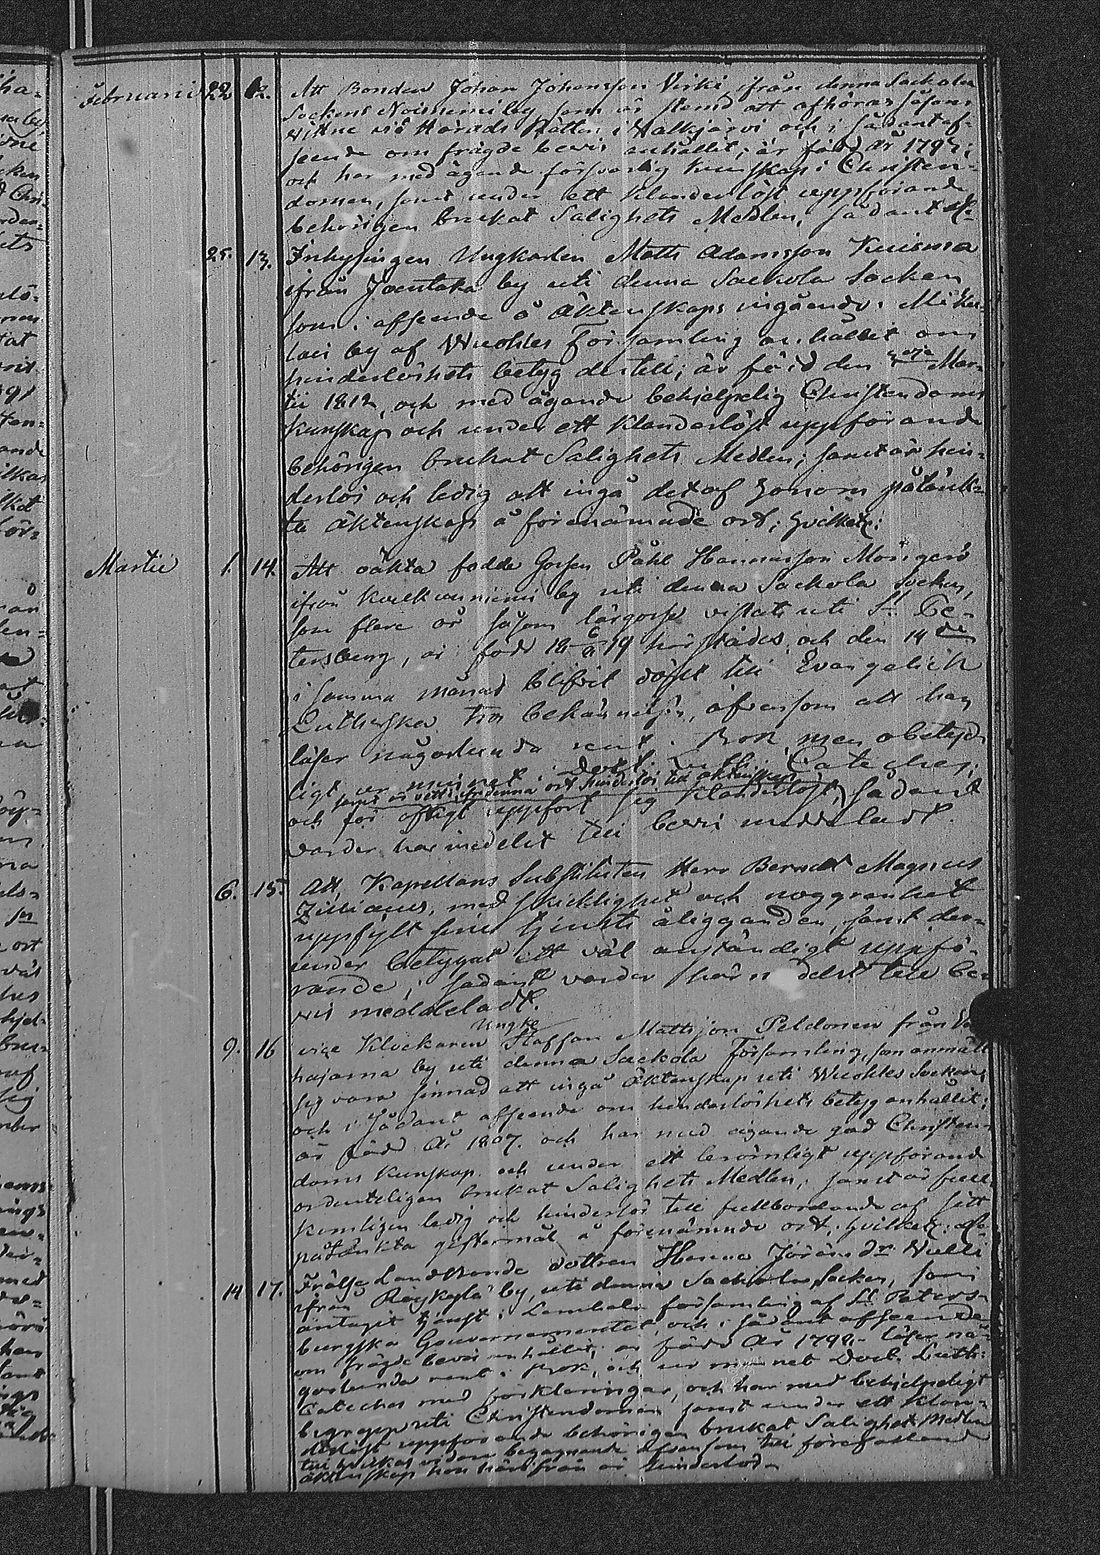 Februarii 22. 12. Att Bonden Johan Johansson Virki, ifrån denna Sackola
Sockens Noisniemi by, som är stemd att afhöras såsom
vittne vid Härads Rätten i Walkjärvi och i sådant af-
seende om frägde bevis anhållit; är född år 1797;
och har med ägande försvarlig kunskap i Christen-
domen, samt under ett klanderlöst uppförande
behörigen brukat Salighets Medlen, sådant
25. 13. Inhysingen Ungkarlen Matts Adamsson Kuisma
ifrån Joentaka by uti denna Sackola Socken
som i afseende å Äktenskaps ingående i Miku-
lais by af Wuokles Församling anhållit om
hinderlöshets betyg dertill; är född den Mar-
tii 1812, och med ägande behjelpelig Christendoms
kunskap och under ett klanderlöst uppförande
behörigen brukat Salighets Medlen; samt är hin-
derlös och ledig att ingå det af honom påtänk-
ta äktenskap å förenämnde ort; hvilket:
Martii 1. 14. Att oäkta födde Gossen Påhl Hannusson
ifrån by uti denna Sackola Socken,
som flere år såsom lärgosse vistats uti St. Pe-
tersburg, är född 18 19 härstädes och den 14 de
i samma månad blifvit döpt till Evangelisk
Lutherska tros bekännelse, äfvensom att han
läser någorlunda rent i Bok men obetyd-
ligt ur minnet Doct: Luth: Cateches;
samt är vetterligen denna ort hinderlös till äktenskap
och för öfrigt uppfört sig klanderlöst, sådant
varder härmedelst till bevis meddeladt.
6. 15. Att Kapellans Substituten Herr Berndt Magnus
Zilliacus, med skicklighet och noggranhet
uppfylt sine tjenste åligganden, samt der-
under betygat ett väl anständigt uppfö-
rande; sådant varder härmedelst till be-
vis meddeladt.
Ungk:
9. 16 vice Klockaren Staffan Mattsson Peldonen från
hajarna by uti denna Sackola Församling, som anmält
sig vara sinnad att ingå Äktenskap uti Wuokles Socken,
och i sådant afseende om hinderlöshets betyg anhållit;
är född År 1807 och har med ägande god Christen-
doms kunskap och under ett berömligt uppförande
ordenteligen brukat Salighets Medlen, samt är full-
komligen ledig och hinderlös till fullbordande af sitt
påtänkta giftermål å förenämnde ort; hvilket
14 17. Frälse Landbonde dottren Helena Jöransdr
ifrån Röykylä by, uti denna Sackola Socken, som
antagit tjenst i Lembala församling af St. Peters-
burgska Gouvernementet, och i sådant afseende
om frägde bevis anhållit; är född År 1798, läser nå-
gorlunda rent i Bok, och ur minnet Doct. Luth:
Cateches med förklaringar, och har med behjelpeligt
begrepp uti Christendomen samt under ett klan-
derlöst uppförande behörigen brukat Salighets Medlen
till hvilkas vidare begagnande äfvensom till förefallande
äktenskap hon härifrån är hinderlös.